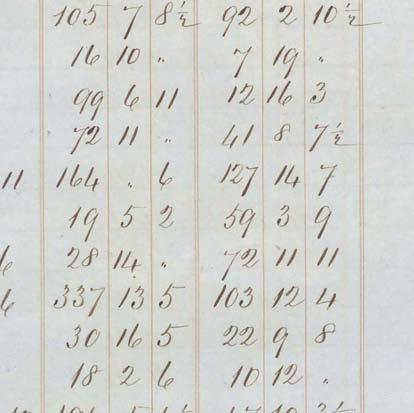 105 7 8½ 92 2 10½
16 10 " 7 19 "
99 6 11 12 16 3
72 11 " 41 8 7½
11 164 " 6 127 14 7
19 5 2 59 3 9
6 28 14 " 72 11 11
6 337 13 5 103 12 4
30 16 5 22 9 8
18 2 6 10 12 "